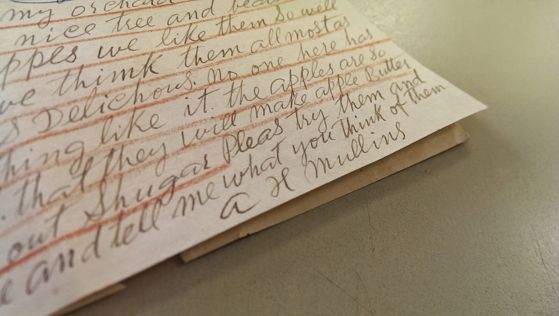 my orchard
nice tree and bea
ppes we like them so well
we think them allmost as
s Delichous. no one here has
thing like it. the apples are so
. that they will make apple Butter
out Shugar Pleas try them and
e and tell me what you think of them
A H Mullins